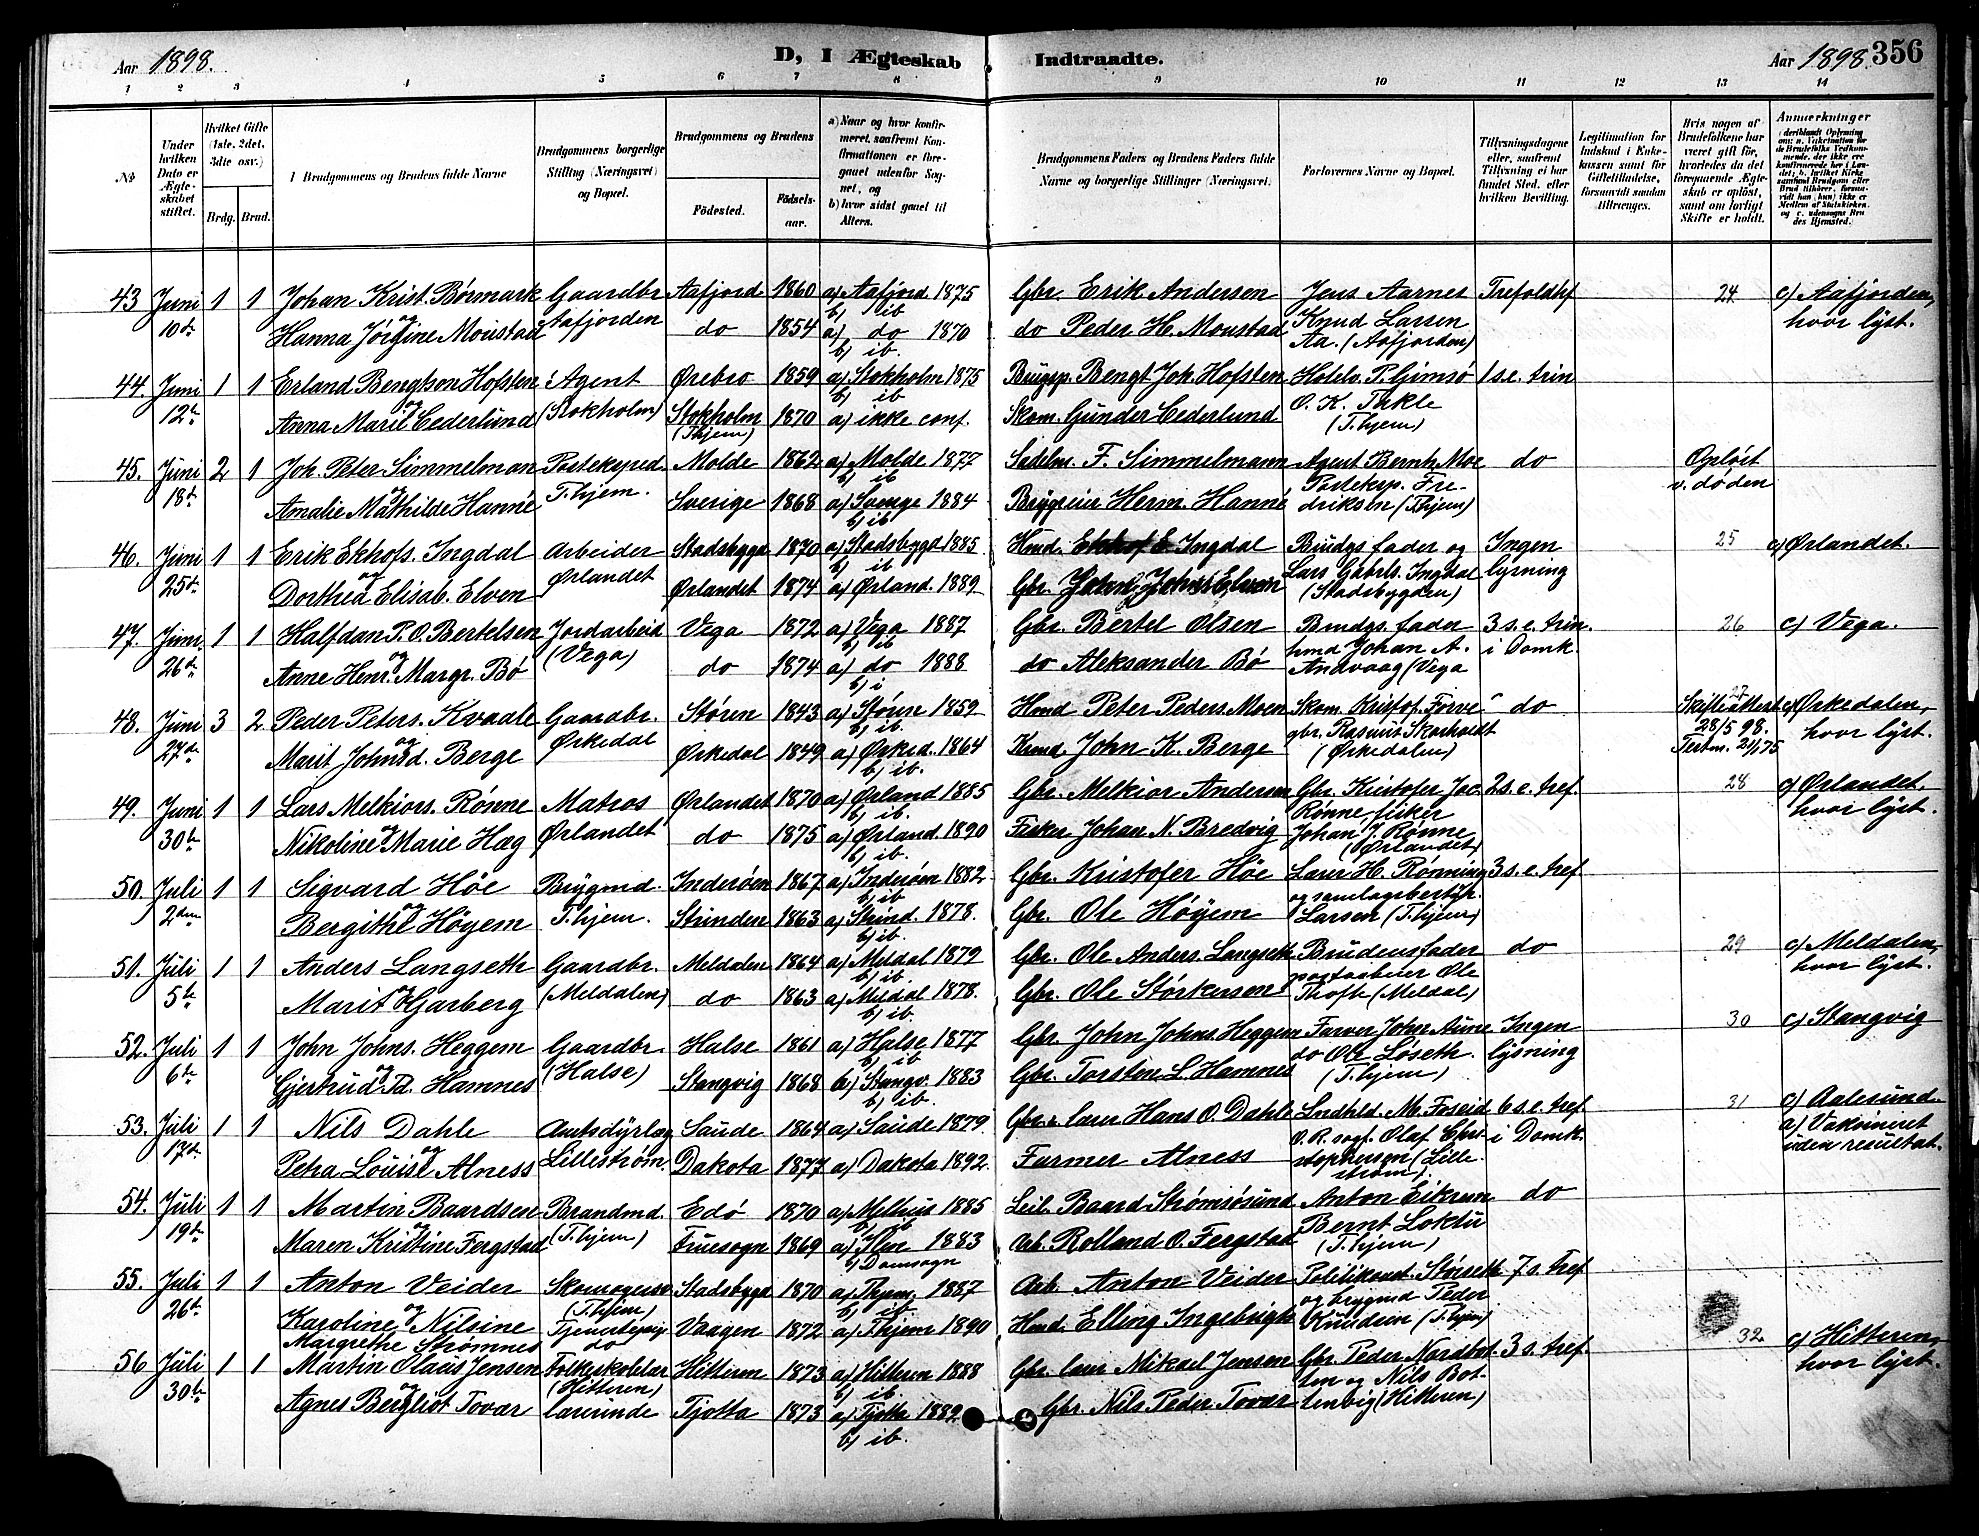 Aar 1898.
D, I Ægteskab Indtraadte.
Aar 1898. 356
1 2 3 4 5 6 7 8 9 10 11 12 13 14
№
Under hvilken Dato er Ægteskabet stiftet.
Hvilket Gifte (1ste, 2det, 3die osv.)
Brdg. Brud.
Brudgommens og Brudens fulde Navne
Brudgommens borgerlige Stilling (Næringsvei) og Bopæl.
Brudgommens og Brudens
Fødested. Fødselsaar.
a) Naar og hvor konfirmeret, saafremt Konfirmationen er foregaaet udenfor Sognet, og
b) hvor sidst gaaet til Alters.
Brudgommens Faders og Brudens Faders fulde Navne og borgerlige Stillinger (Næringsvei.
Forlovernes Navne og Bopæl.
Tillysningsdagene eller, saafremt Tillysning ei har fundet Sted, efter hvilken Bevilling.
Legitimation for Indskud i Enkekassen samt for Giftetilladelse, forsaavidt saadan tiltrænges.
Hvis nogen af Brudefolkene har været gift før, hvorledes da det foregaaende Ægteskab er opløst, samt om lovligt Skifte er holdt.
Anmærkninger
43 Juni 1 1 Johan Krist. Børmark Gaardbr. Aafjord 1860 a) Aafjord 1875 Gbr. Erik Andersen Jens Aarnes Trefoldkf 24 c) Aafjorden,
10de og Aafjorden b) ib Knud Larsen hvor lyst.
Hanna Jørgine Moustad do 1854 a) do 1870 do Peder H. Moustad Aa. (Aafjorden)
b) ib.
44. Juni 1 1 Erland Bengtson Hofsten Agent Ørebro 1859 a) Stokholm 1875 Brugsp. Bengt Joh. Hofsten Hotelv. P. Gimsø 1 s.e. trin
12te og (Stokholm) b) ib O. K. Takle
Anna Marie Cederlund Stokholm 1870 a) ikke conf. Skom. Gunder Cederlund (T.hjem)
(T.hjem)
45. Juni 2 1 Joh. Peter Simmelman Postekspred. Molde 1862 a) Molde 1877 Sadelm. F. Simmelmann Agent Bernh. Moe do Opløst
18de og T.hjem. b) ib Posteksp. Fre- v. døden
Amalie Mathilde Hanné Sverige 1868 a) Sverige 1884 Bryggeiei Herm. Hanné driksen (T.hjem)
b) ib
46. Juni 1 1 Erik Ekhofs. Ingdal Arbeider Stadsbygd 1870 a) Stadsbygd 1885 Hmd. Ekhof E. Ingdal Brudgs fader og Ingen 25 c) Ørlandet.
25de og Ørlandet b) ib Lars Gabrls. Ingdal lysning
Dorthea Elisab. Elven Ørlandet 1874 a) Ørland. 1889 Gbr. Elven (Stadsbygden)
47. Juni 1 1 Halfdan P. O. Bertelsen Jordarbeid Vega 1872 a) Vega 1887 Gbr. Bertel Olsen Brudgs. fader 3 s.e. trin. 26 c) Vega.
26de og (Vega) b) ib hmd Johan A. i Domk.
Anne Henr. Margr. Bø do 1874 a) do 1888 do Aleksander Bø Andvaag (Vega
b) i
48. Juni 3 2 Peder Peters. Kvaale Gaardbr. Støren 1843 a) Støren 1859 Hmd Peter Peders. Moen Skom. Kristof. Forve do 27 Skifteattest c) Ørkedalen,
27de og Ørkedal b) ib. gbr. Rasmus Skarholdt 28/5 98. hvor lyst.
Marit Johnsd. Berge Ørkedal 1849 a) Ørked. 1864 John K. Berge (Ørkedalen)
b) ib.
49. Juni 1 1 Lars Melkiors. Rønne Matros Ørlandet 1870 a) Ørland 1885 Gbr. Melkior Andersen Gbr. Kristofer Jac. 2 s.e. tref. 28 c) Ørlandet,
30te og Ørlandet b) ib. Rønne, fisker hvor lyst.
Nikoline Marie Hag do 1875 a) Ørland. 1890 Fisker Johan N. Bredvig Johan J. Rønne
b) ib. (Ørlandet)
50. Juli 1 1 Sigvard Høe Brygmd. Inderøen 1867 a) Inderøen 1882 Gbr. Kristofer Høe Lærer H. Rønning 3 s.e. tref
2den og T.hjem. b) ib og samlagsbestyr.
Bergithe Høyem Strinden 1863 a) Strind. 1878. Gbr. Ole Høyem Larsen (T.hjem)
b) ib.
51. Juli 1 1 Anders Langseth Gaardbr. Meldalen 1864 a) Meldal 1879 Gbr. Ole Anders. Langseth Brudens fader do 29 c) Meldalen,
5te og (Meldalen) b) ib. Ole hvor lyst.
Marit Garberg do 1863 a) Meldal 1878. Gbr. Ole Størkersen Thoft (Meldal)
b) ib.
52. Juli 1 1 John Johns. Heggem Gaardbr. Halse 1861 a) Halse 1877 Gbr. John Johns. Heggem Farver Johs Aune Ingen 30 c) Stangvig
6te og (Halse) b) ib do Ole Løseth. lysning
Gjertrud Hamnes Stangvig 1868 a) Stangv. 1883 Gbr. Torsten L. Hamnes (T.hjem)
b) ib.
53. Juli 1 1 Nils Dahle Amtsdyrlæg Saude 1864 a) Saude 1879. Gbr. & lærer Hans O. Dahle Lndhld. M. Foseid 6 s.e. tref. 31 c) Aalesund.
17de og Lillestrøm. O.R. sagf. Olaf Chri- i Domk. a) Vakcineret
Petra Louise Alness Dakota 1877 a) Dakota 1892. Farmer Alness stophersen (Lille- uden resultat.
strøm)
54. Juli 1 1 Martin Baardsen Brandmd. Edø 1870 a) Melhus 1885 Leil. Baard Strømsøsund Anton Eikrem do
19de og (T.hjem) b) ib Bernt Loktu
Maren Kristine Fergstad Fuesogn 1869 a) Ilen 1883 Arb. Rolland O. Fergstad (T.hjem)
b) Domsogn
55. Juli 1 1 Anton Veider Skomagersv Stadsbygd 1870 a) Thjem. 1887 Arb. Anton Veider Politikonst. Størseth 7 s. tref
26de og (T.hjem) b) ib og brygmd Peder
Karoline Nilsine Tjenestepige Vaagen 1872 a) Thjem 1890 Hmd. Elling Ingebrigts Knudsen (T.hjem)
Margrethe Strømnes do
56 Juli 1 1 Martin Olaus Jensen Folkeskolelær Hitteren 1873 a) Hitteren 1888 Gbr. lærer Mikael Jensen Gbr. Peder Nordbot- 3 s. tref. 32 c) Hitteren,
30te og (Hitteren) b) ib. ten og Nils Bot- hvor lyst.
Agnes Bergliot Tovær lærerinde Tjøtta 1873 a) Tjøtta 1889 Gbr. Nils Peder Tovær tenvig (Hitteren)
b) ib.